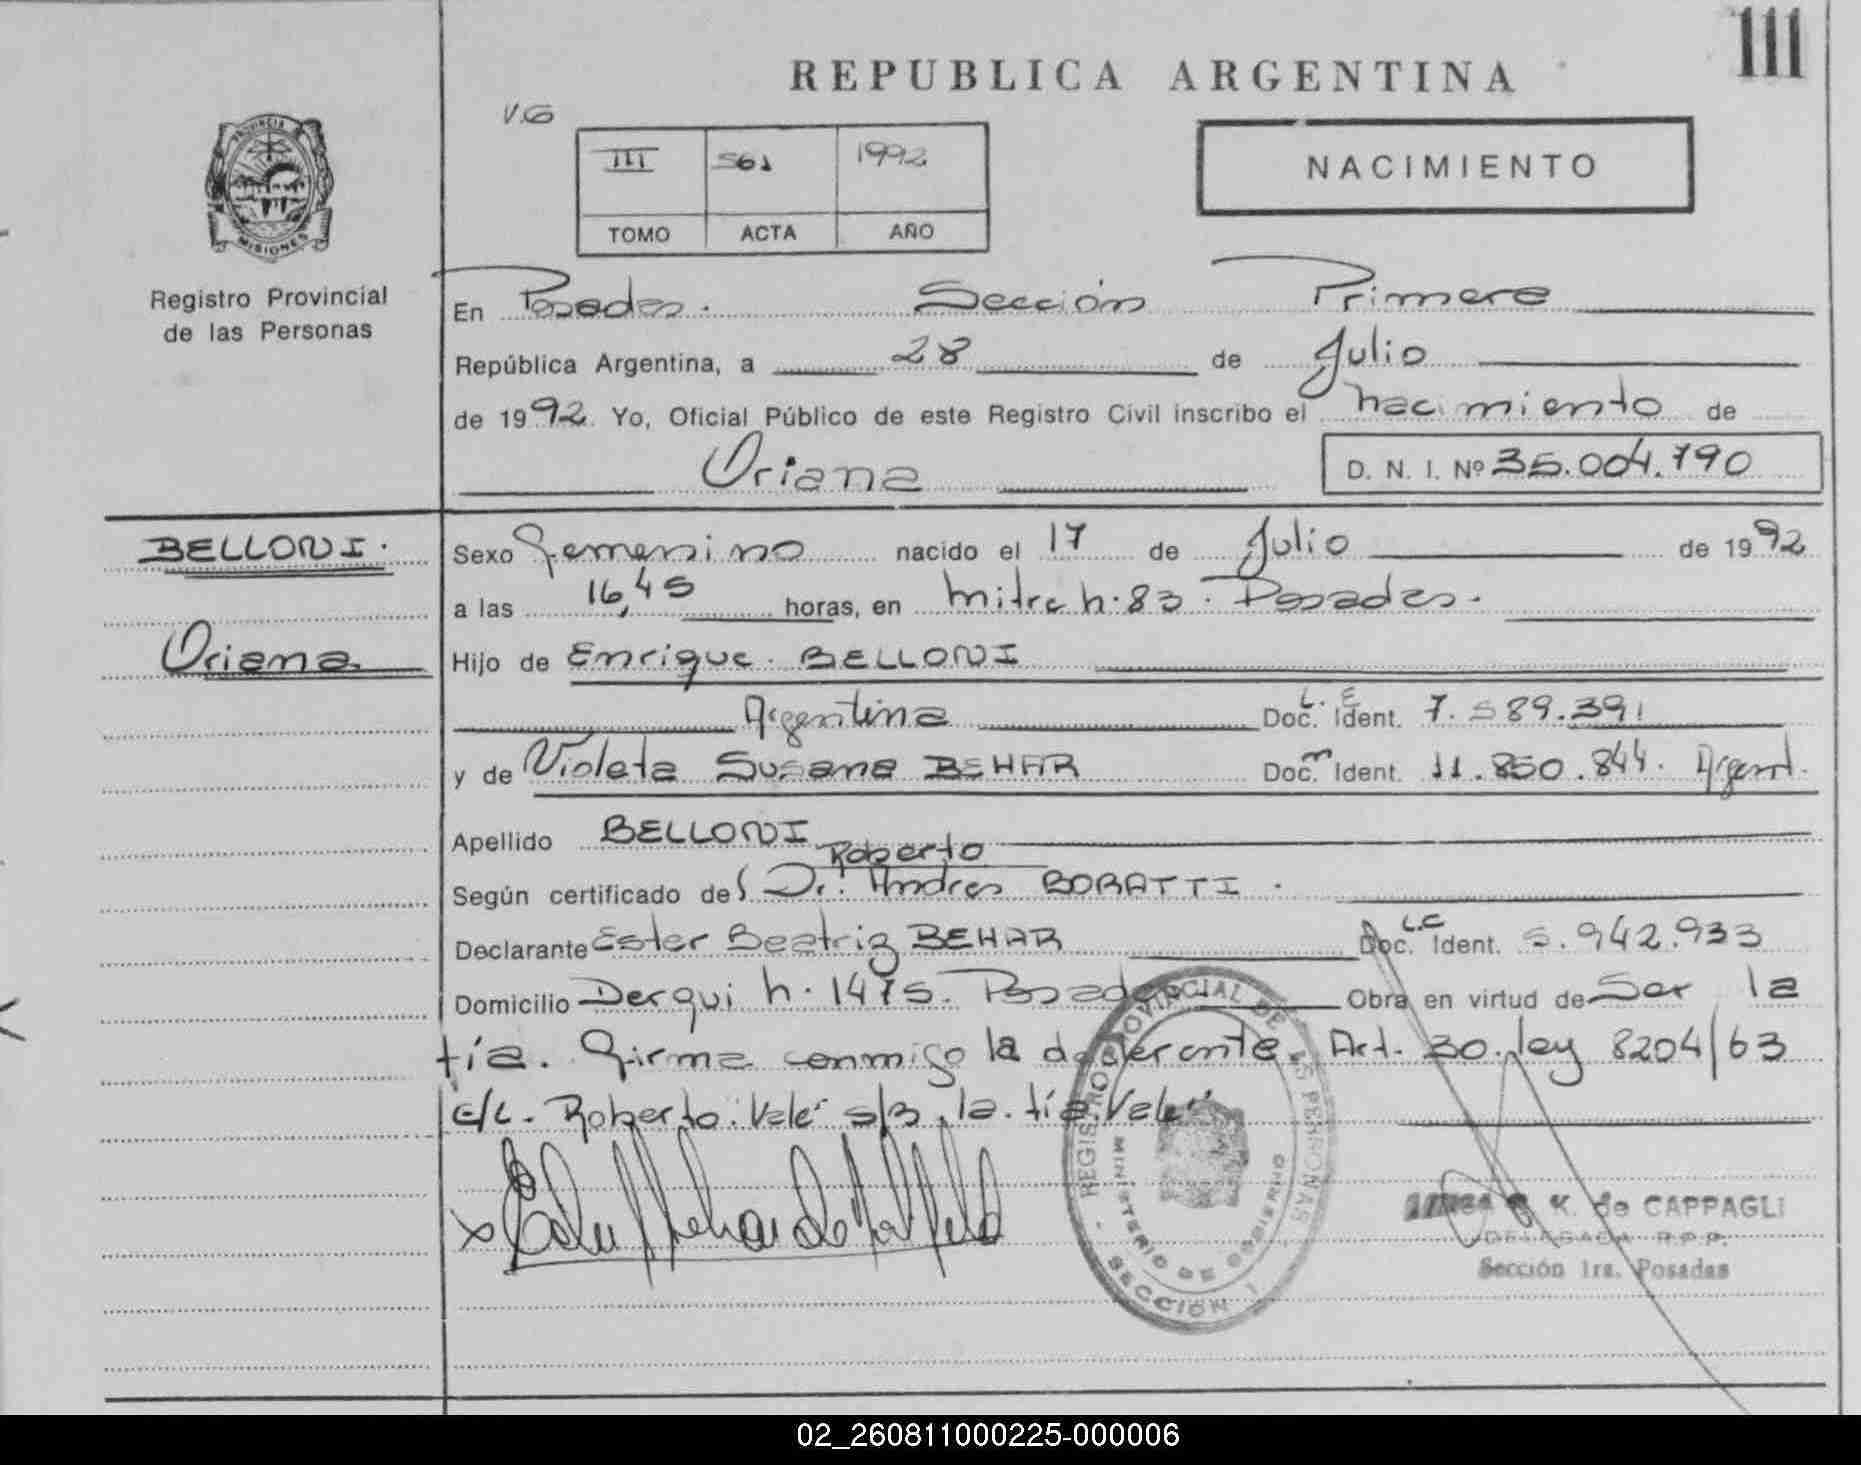 111
REPUBLICA ARGENTINA
V.G
PROVINCIA
MISIONES
III 561 1992
TOMO ACTA AÑO
NACIMIENTO
Registro Provincial
de las Personas
En Posadas. Sección Primera
República Argentina, a 28 de Julio
de 1992. Yo, Oficial Público de este Registro Civil inscribo el nacimiento de
Oriana D. N. I. Nº 35.004.790
BELLONI.
Oriana
Sexo Femenino nacido el 17 de Julio de 1992
a las 16,45 horas, en Mitre n. 83. Posadas.
Hijo de Enrique BELLONI
Argentina Doc. Ident. L. E 7.589.391
y de Violeta Susana BEHAR Doc. Ident. 11.850.844. Argent.
Apellido BELLONI
Roberto
Según certificado del Dr. Andres BORATTI.
Declarante Ester Beatriz BEHAR Doc. Ident. L.C 5.942.933
Domicilio Derqui n. 1475. Posadas Obra en virtud de Ser la
tía. Firma conmigo la declarante Art. 30. ley 8204/63
E/L. Roberto. Vale s/B. la. tía. Vale
REGISTRO PROVINCIAL DE LAS PERSONAS
MINISTERIO DE GOBIERNO
SECCIÓN 1
K. de CAPPAGLI
DELEGADA R.P.P.
Sección 1ra. Posadas
02_260811000225-000006